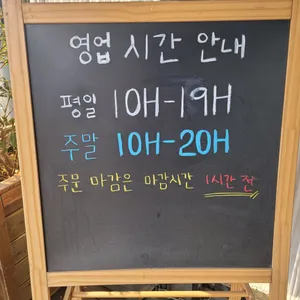 영업 시간 안내
평일 10H-19H
주말 10H-20H
주문 마감은 마감시간 1시간 전